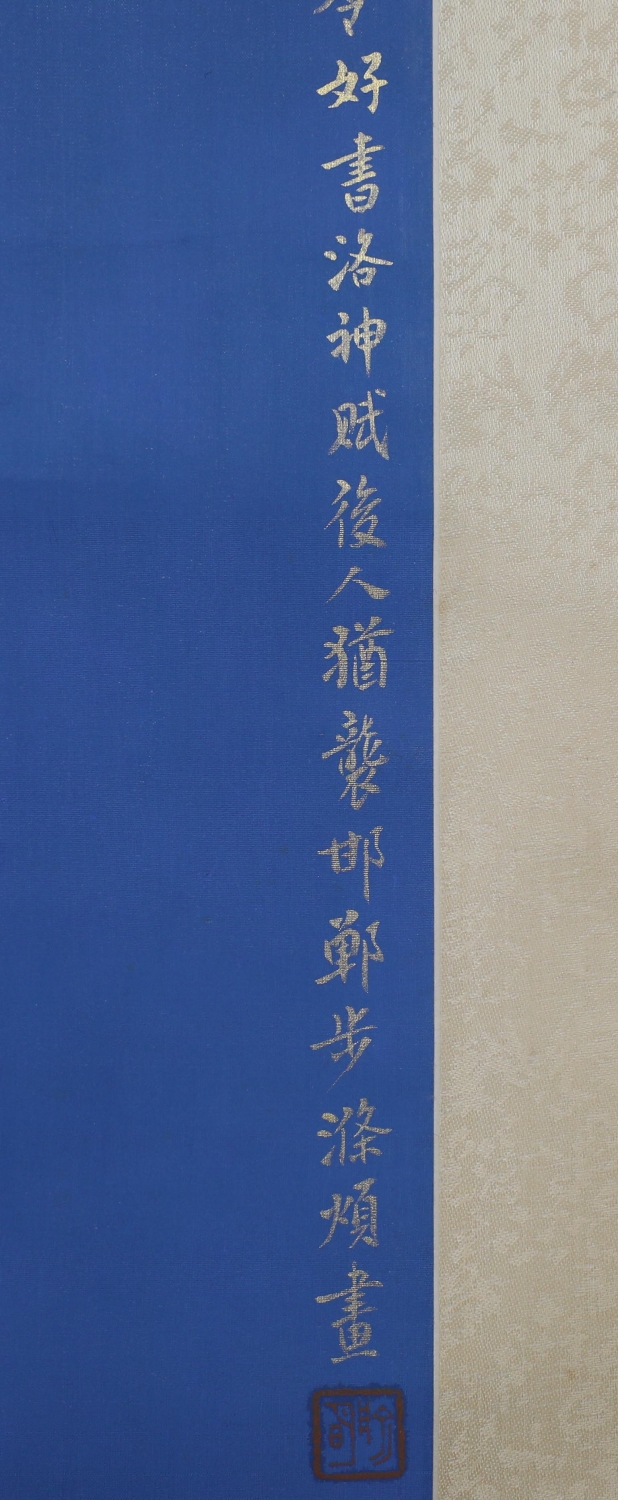 令好書洛神賦後人猶襲邯鄲步滌煩畫